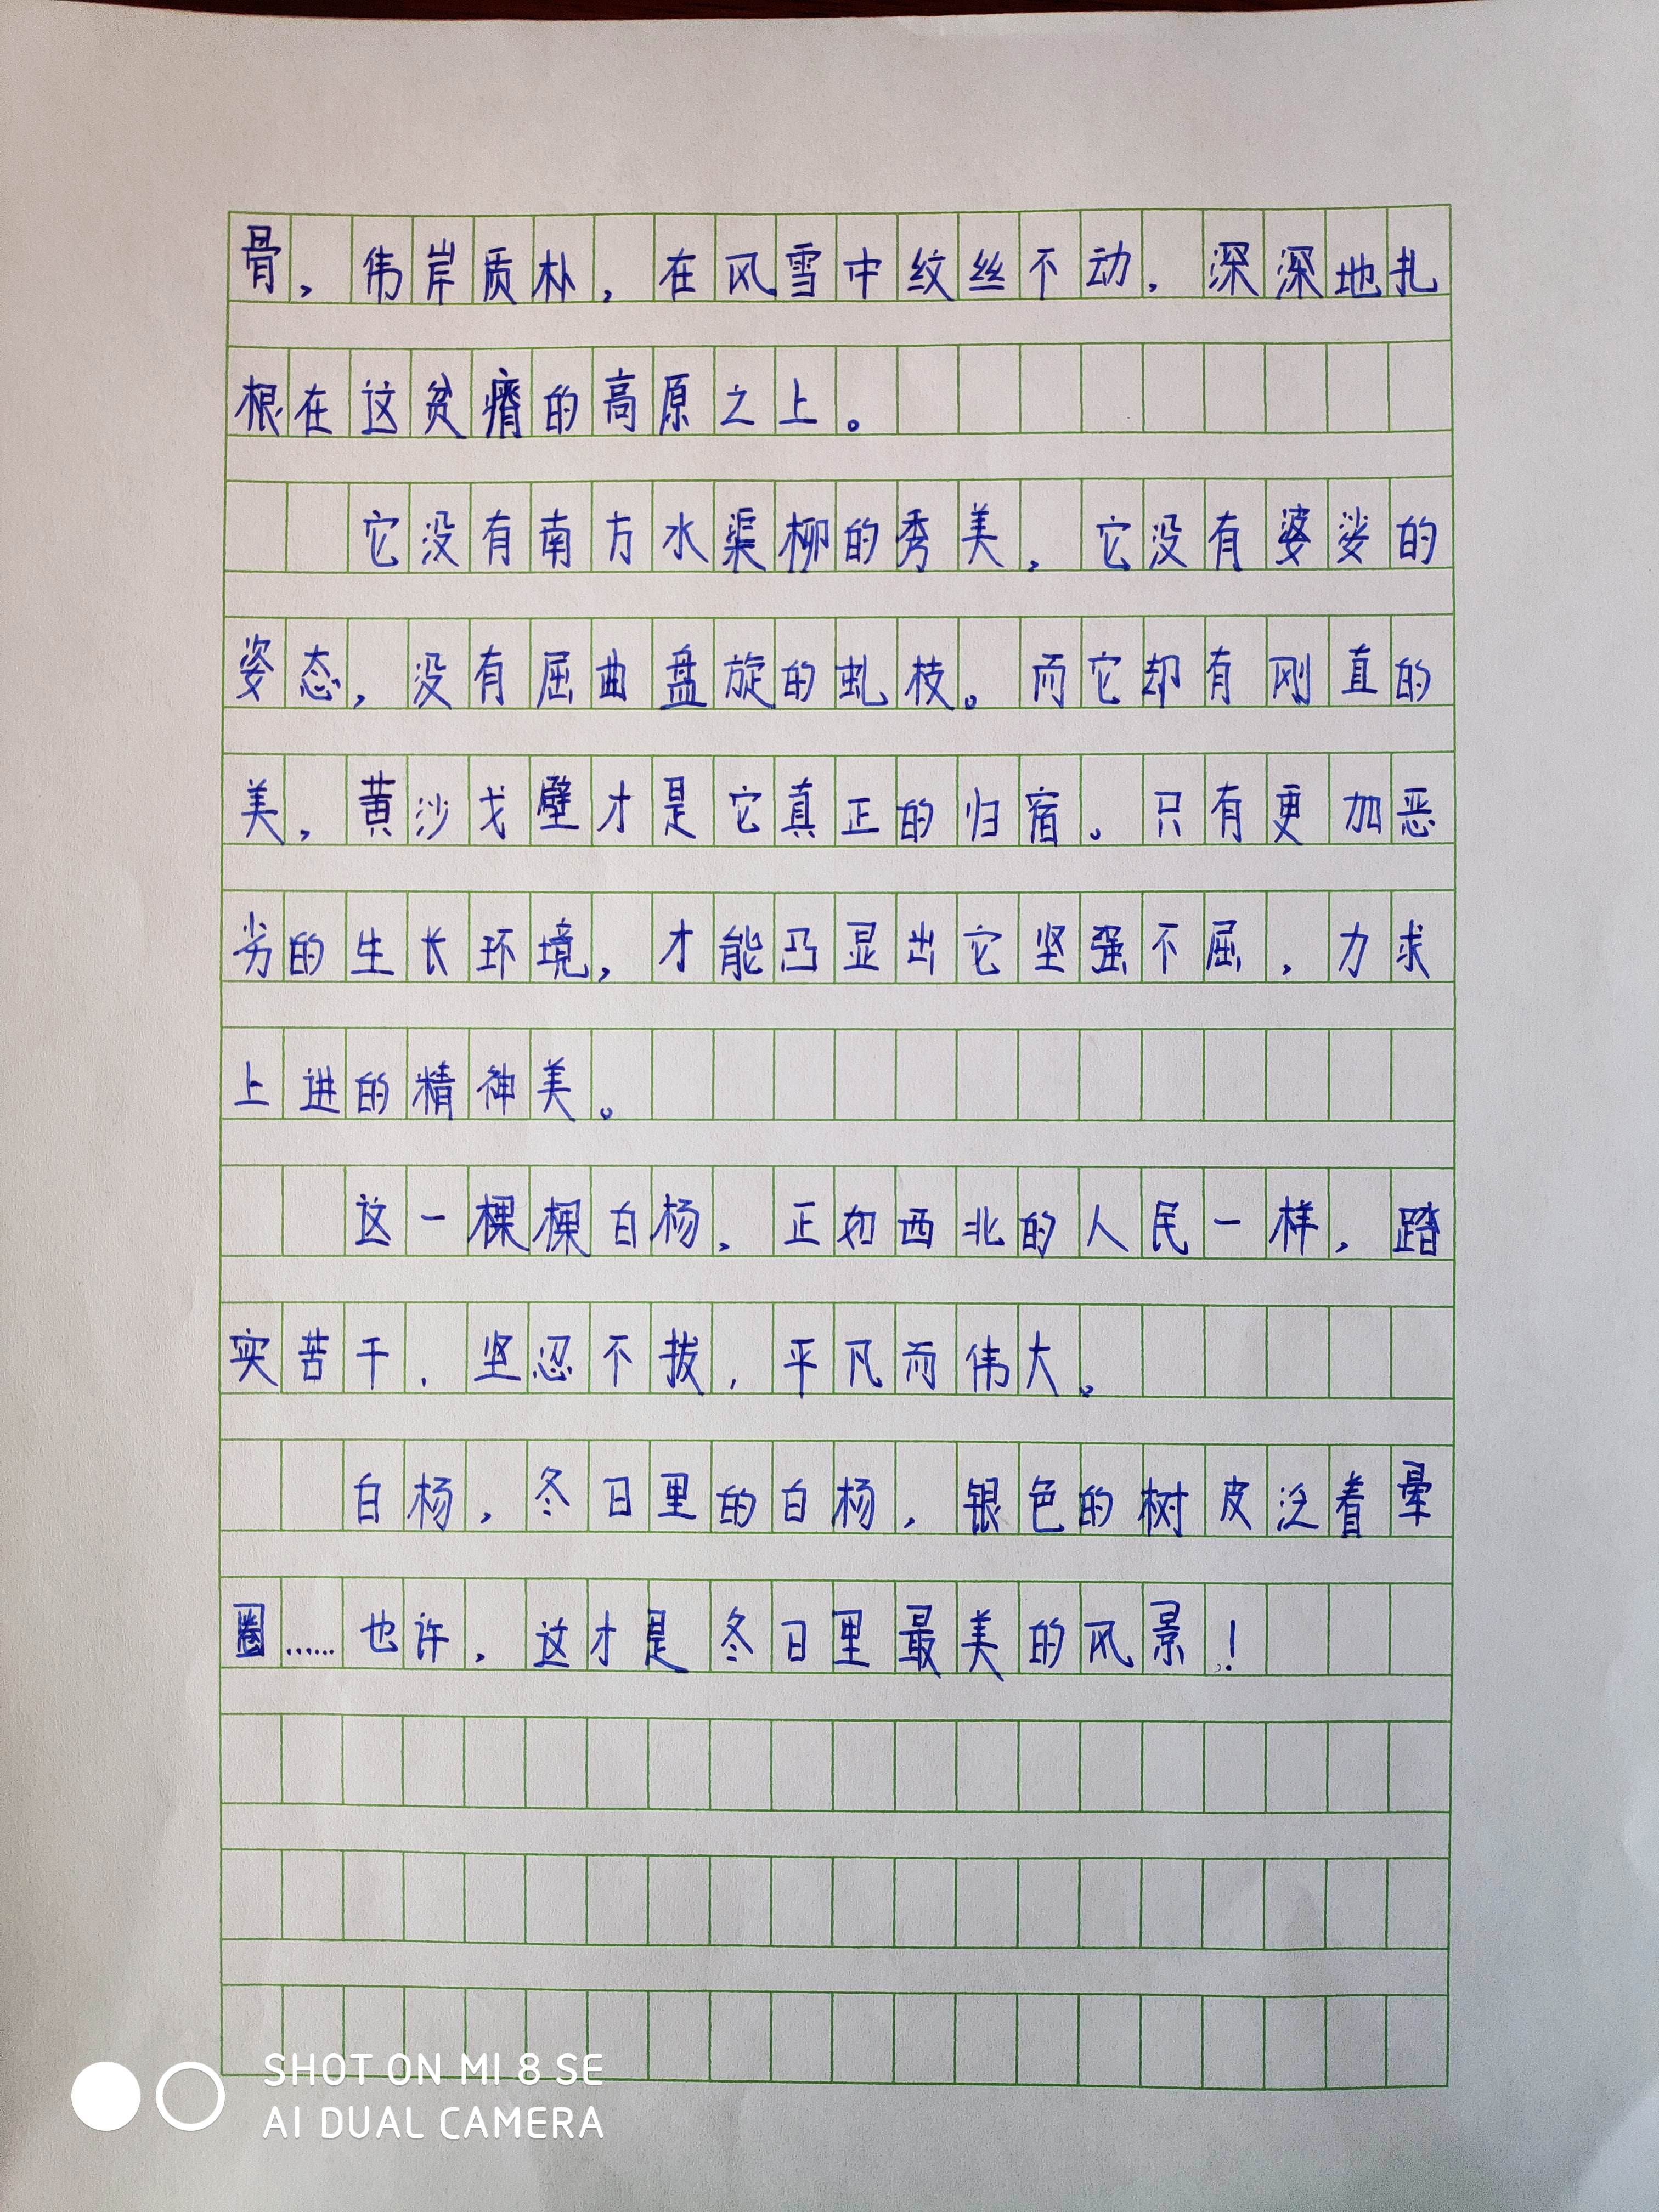 骨，伟岸质朴，在风雪中纹丝不动，深深地扎
根在这贫瘠的高原之上。
它没有南方水渠柳的秀美，它没有婆娑的
姿态，没有屈曲盘旋的虬枝。而它却有刚直的
美，黄沙戈壁才是它真正的归宿。只有更加恶
劣的生长环境，才能凸显出它坚强不屈，力求
上进的精神美。
这一棵棵白杨，正如西北的人民一样，踏
实苦干，坚忍不拔，平凡而伟大。
白杨，冬日里的白杨，银色的树皮泛着晕
圈……也许，这才是冬日里最美的风景！
SHOT ON MI 8 SE
AI DUAL CAMERA